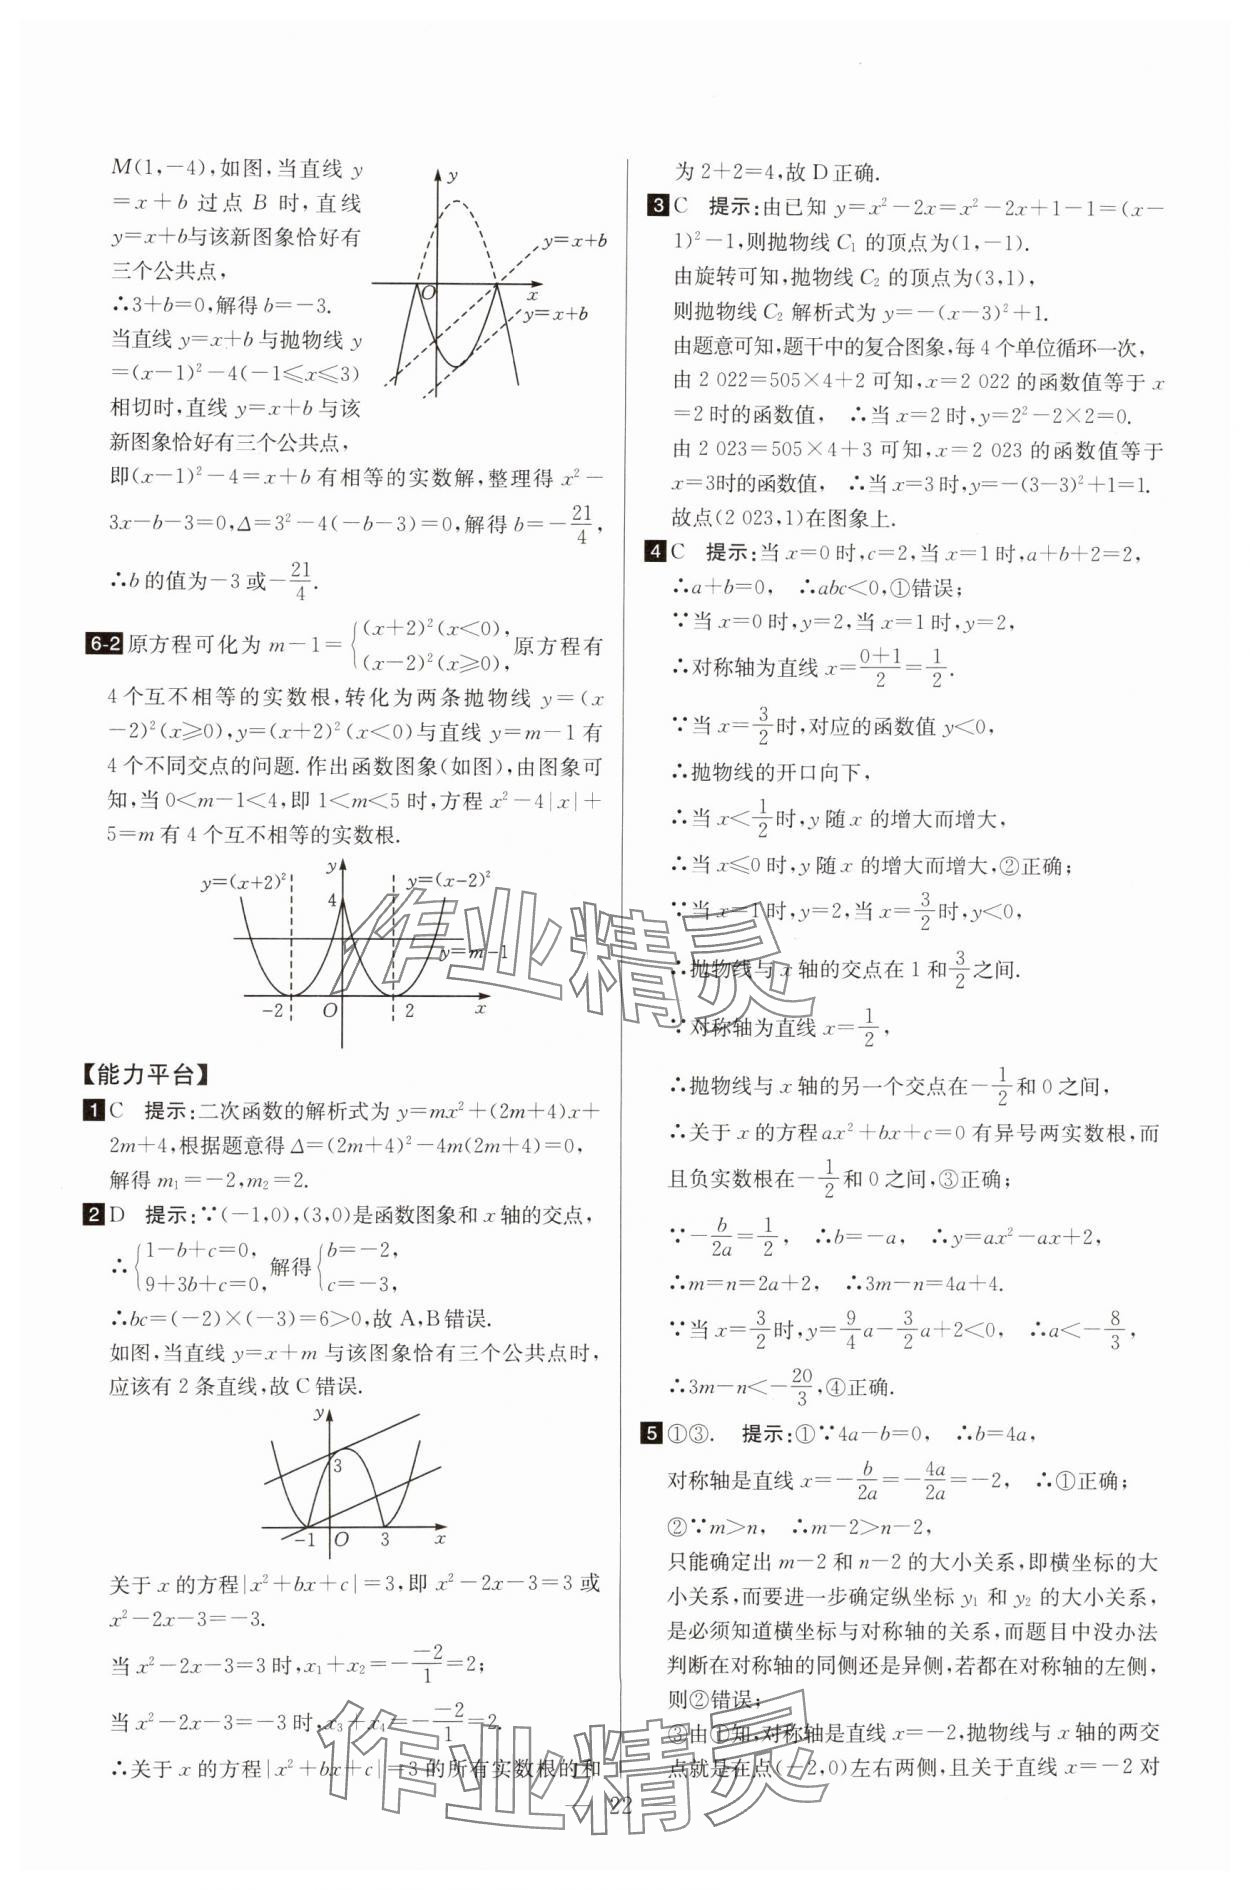 M(1,-4),如图,当直线 y
=x+b 过点 B 时,直线
y=x+b与该新图象恰好有
三个公共点,
∴3+b=0,解得 b=-3.
当直线 y=x+b 与抛物线 y
=(x-1)²-4(-1≤x≤3)
相切时,直线 y=x+b 与该
新图象恰好有三个公共点,
y
y=x+b
O
x
y=x+b
即(x-1)²-4=x+b 有相等的实数解,整理得 x²-
3x-b-3=0,Δ=3²-4(-b-3)=0,解得 b=-21/4,
∴b 的值为-3 或-21/4.
6-2 原方程可化为 m-1={(x+2)²(x<0), (x-2)²(x≥0), 原方程有
4 个互不相等的实数根,转化为两条抛物线 y=(x
-2)²(x≥0),y=(x+2)²(x<0)与直线 y=m-1 有
4 个不同交点的问题.作出函数图象(如图),由图象可
知,当 0<m-1<4,即 1<m<5 时,方程 x²-4|x|+
5=m 有 4 个互不相等的实数根.
y
y=(x+2)²
y=(x-2)²
4
y=m-1
-2
O
2
x
【能力平台】
1 C 提示:二次函数的解析式为 y=mx²+(2m+4)x+
2m+4,根据题意得 Δ=(2m+4)²-4m(2m+4)=0,
解得 m₁=-2,m₂=2.
2 D 提示:∵(-1,0),(3,0)是函数图象和 x 轴的交点,
∴{1-b+c=0, 9+3b+c=0, 解得{b=-2, c=-3,
∴bc=(-2)×(-3)=6>0,故 A,B 错误.
如图,当直线 y=x+m 与该图象恰有三个公共点时,
应该有 2 条直线,故 C 错误.
y
3
-1
O
3
x
关于 x 的方程|x²+bx+c|=3,即 x²-2x-3=3 或
x²-2x-3=-3.
当 x²-2x-3=3 时,x₁+x₂=--2/1=2;
当 x²-2x-3=-3 时,x₃+x₄=--2/1=2.
∴关于 x 的方程|x²+bx+c|=3 的所有实数根的和
为 2+2=4,故 D 正确.
3 C 提示:由已知 y=x²-2x=x²-2x+1-1=(x-
1)²-1,则抛物线 C₁ 的顶点为(1,-1).
由旋转可知,抛物线 C₂ 的顶点为(3,1),
则抛物线 C₂ 解析式为 y=-(x-3)²+1.
由题意可知,题干中的复合图象,每 4 个单位循环一次,
由 2 022=505×4+2 可知,x=2 022 的函数值等于 x
=2 时的函数值, ∴当 x=2 时,y=2²-2×2=0.
由 2 023=505×4+3 可知,x=2 023 的函数值等于
x=3时的函数值, ∴当 x=3 时,y=-(3-3)²+1=1.
故点(2 023,1)在图象上.
4 C 提示:当 x=0 时,c=2,当 x=1 时,a+b+2=2,
∴a+b=0, ∴abc<0,①错误;
∵当 x=0 时,y=2,当 x=1 时,y=2,
∴对称轴为直线 x=(0+1)/2=1/2.
∵当 x=3/2时,对应的函数值 y<0,
∴抛物线的开口向下,
∴当 x<1/2时,y 随 x 的增大而增大,
∴当 x≤0 时,y 随 x 的增大而增大,②正确;
∵当 x=1 时,y=2,当 x=3/2时,y<0,
∴抛物线与 x 轴的交点在 1 和3/2之间.
∵对称轴为直线 x=1/2,
∴抛物线与 x 轴的另一个交点在-1/2和 0 之间,
∴关于 x 的方程 ax²+bx+c=0 有异号两实数根,而
且负实数根在-1/2和 0 之间,③正确;
∵-b/2a=1/2, ∴b=-a, ∴y=ax²-ax+2,
∴m=n=2a+2, ∴3m-n=4a+4.
∵当 x=3/2时,y=9/4a-3/2a+2<0, ∴a<-8/3,
∴3m-n<-20/3,④正确.
5 ①③. 提示:①∵4a-b=0, ∴b=4a,
对称轴是直线 x=-b/2a=-4a/2a=-2, ∴①正确;
②∵m>n, ∴m-2>n-2,
只能确定出 m-2 和 n-2 的大小关系,即横坐标的大
小关系,而要进一步确定纵坐标 y₁ 和 y₂ 的大小关系,
是必须知道横坐标与对称轴的关系,而题目中没办法
判断在对称轴的同侧还是异侧,若都在对称轴的左侧,
则②错误;
③由①知,对称轴是直线 x=-2,抛物线与 x 轴的两交
点就是在点(-2,0)左右两侧,且关于直线 x=-2 对
— 22 —
作业精灵
作业精灵